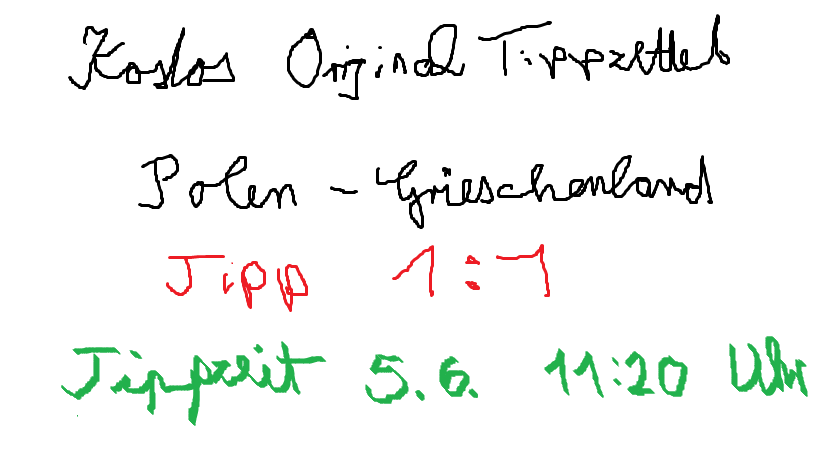 Koslos Original Tippzettel
Polen - Grieschenland
Tipp 1:1
Tippzeit 5.6. 11:20 Uhr